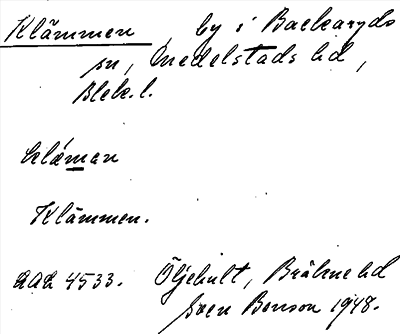 Klämmen, by i Backaryds
sn, Medelstads hd,
Blek. l.
klǽman
Klämmen.
4533. Öljehult, Bräkne hd
Sven Benson 1948.